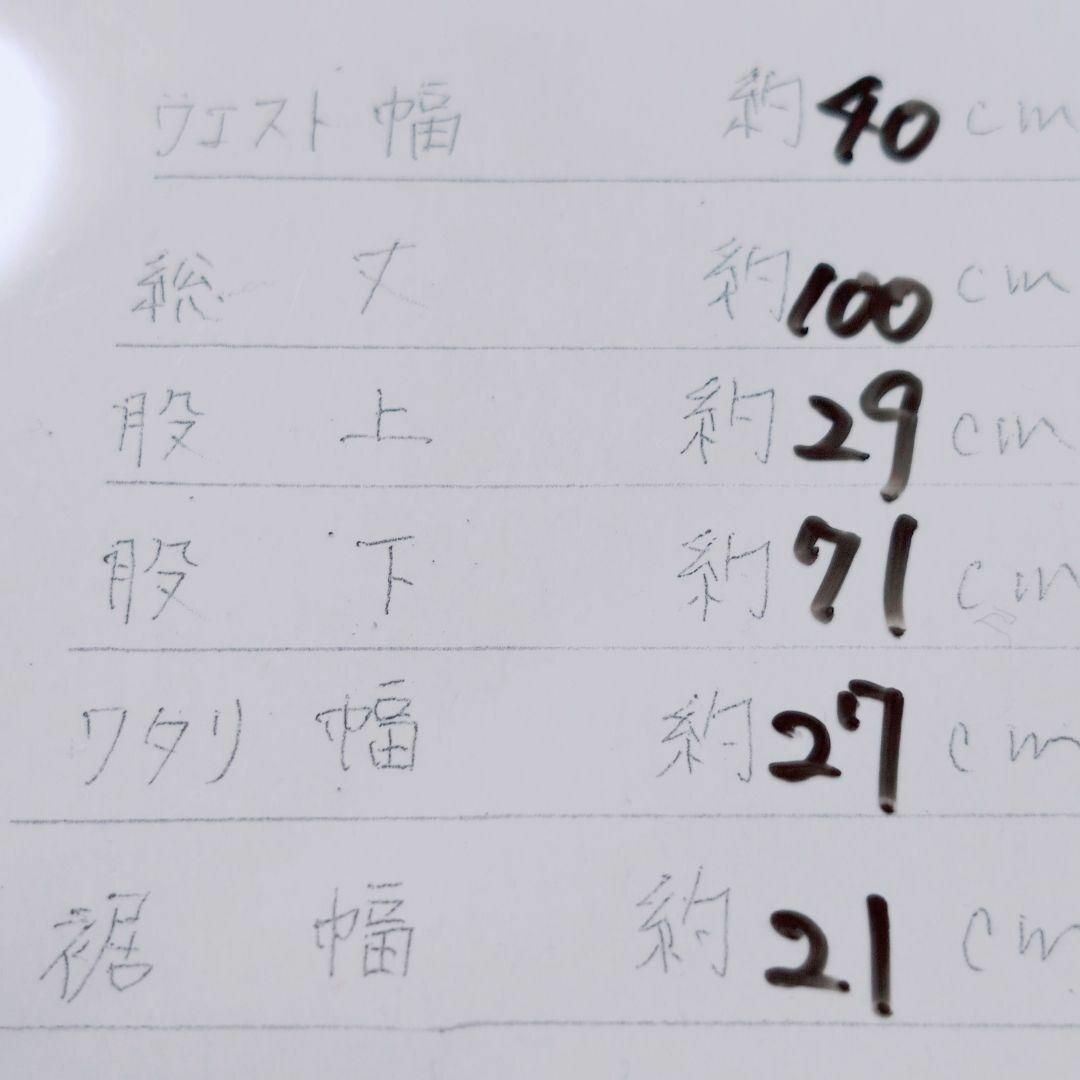 ウエスト幅 約40cm
総丈 約100cm
股上 約29cm
股下 約71cm
ワタリ幅 約27cm
裾幅 約21cm